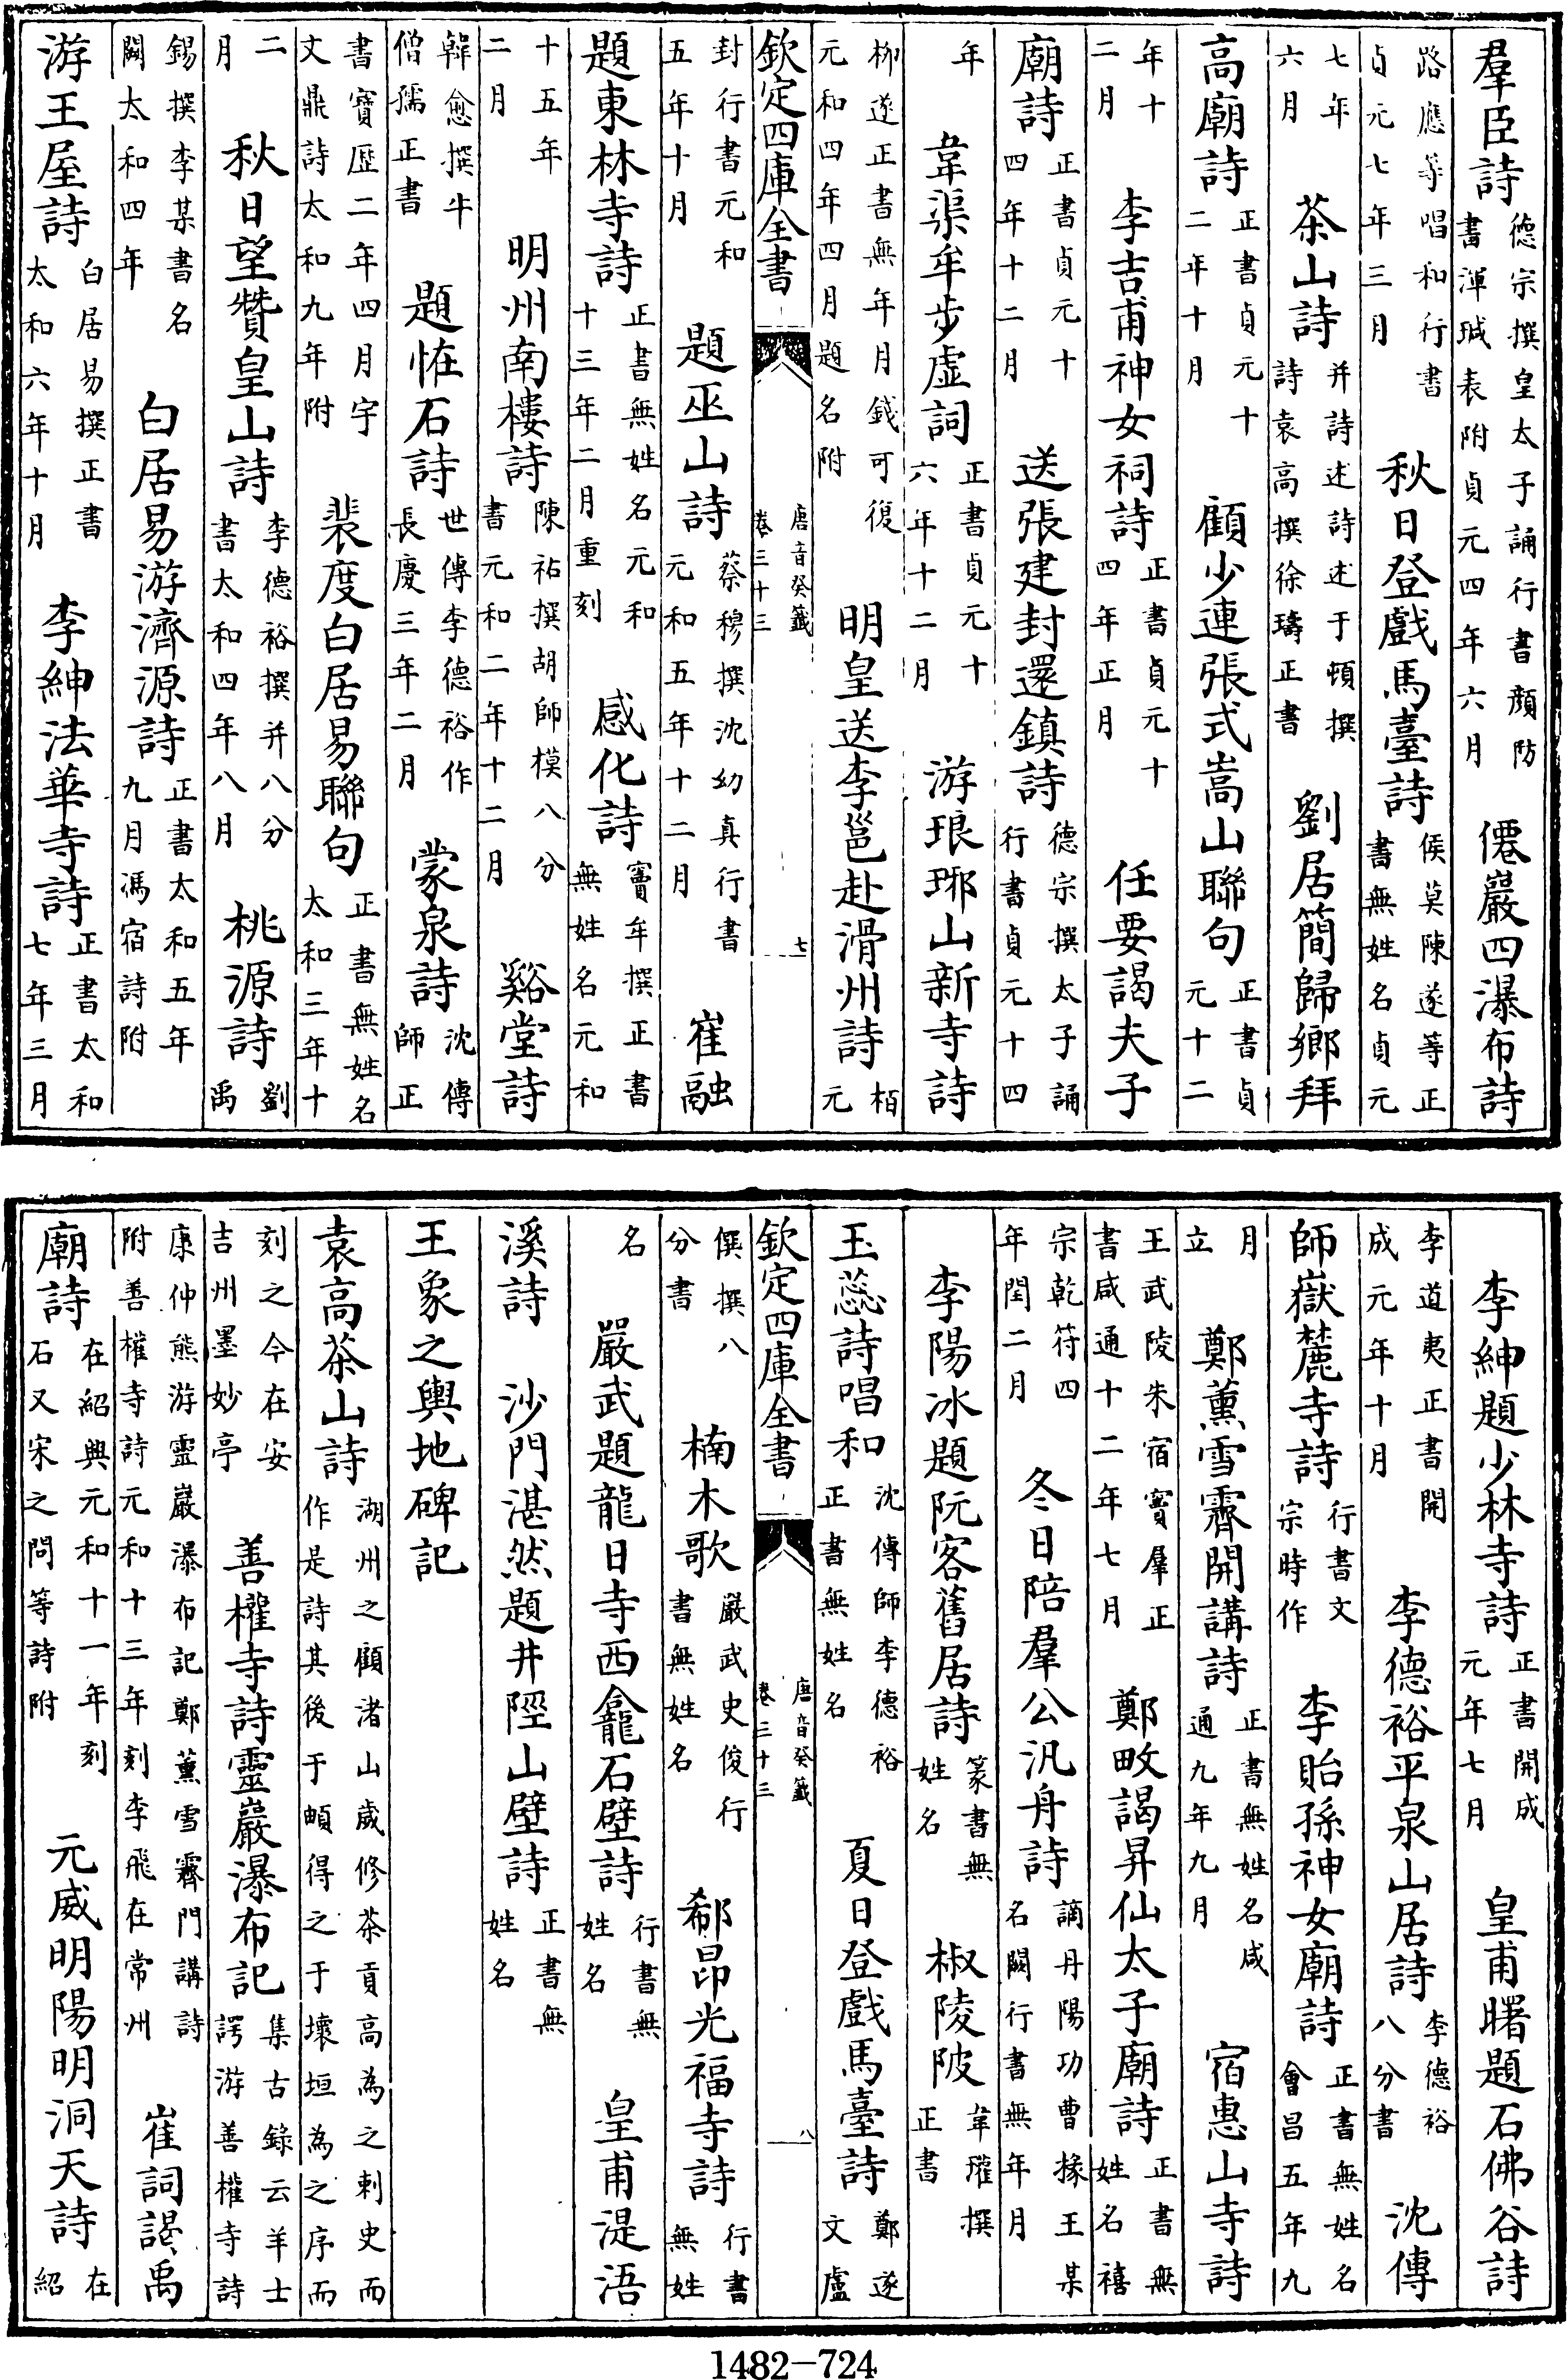 羣臣詩 德宗撰皇太子誦行書顔防書渾瑊表附貞元四年六月 僊巖四瀑布詩
路應等唱和行書貞元七年三月 秋日登戲馬臺詩 侯莫陳遂等正書無姓名貞元
七年六月 茶山詩 并詩述詩述于頔撰詩袁高撰徐璹正書 劉居簡歸鄉拜
高廟詩 正書貞元十二年十月 顧少連張式嵩山聯句 正書貞元十二
年十二月 李吉甫神女祠詩 正書貞元十四年正月 任要謁夫子
廟詩 正書貞元十四年十二月 送張建封還鎮詩 德宗撰太子誦行書貞元十四
年 韋渠牟步虛詞 正書貞元十六年十二月 游琅琊山新寺詩
柳遂正書無年月錢可復元和四年四月題名附 明皇送李邕赴滑州詩 栢元
欽定四庫全書 唐音癸籤卷三十三 七
封行書元和五年十月 題巫山詩 蔡穆撰沈幼真行書元和五年十二月 崔融
題東林寺詩 正書無姓名元和十三年二月重刻 感化詩 竇牟撰正書無姓名元和
十五年二月 明州南樓詩 陳祐撰胡師模八分書元和二年十二月 谿堂詩
韓愈撰牛僧孺正書 題恠石詩 世傳李德裕作長慶三年二月 蒙泉詩 沈傳師正
書寶歷二年四月宇文鼎詩太和九年附 裴度白居易聯句 正書無姓名太和三年十
二月 秋日望贊皇山詩 李德裕撰并八分書太和四年八月 桃源詩 劉禹
錫撰李某書名闕太和四年 白居易游濟源詩 正書太和五年九月馮宿詩附
游王屋詩 白居易撰正書太和六年十月 李紳法華寺詩 正書太和七年三月
李紳題少林寺詩 正書開成元年七月 皇甫曙題石佛谷詩
李道夷正書開成元年十月 李德裕平泉山居詩 李德裕八分書 沈傳
師嶽麓寺詩 行書文宗時作 李貽孫神女廟詩 正書無姓名會昌五年九
月立 鄭薰雪霽開講詩 正書無姓名咸通九年九月 宿惠山寺詩
王武陵朱宿竇羣正書咸通十二年七月 鄭畋謁昇仙太子廟詩 正書無姓名禧
宗乾符四年閏二月 冬日陪羣公汎舟詩 謫丹陽功曹掾王某名闕行書無年月
李陽冰題阮客舊居詩 篆書無姓名 椒陵陂 韋瓘撰正書
玉蕊詩唱和 沈傳師李德裕正書無姓名 夏日登戲馬臺詩 鄭遂文盧
欽定四庫全書 唐音癸籤卷三十三 八
僎撰八分書 楠木歌 嚴武史俊行書無姓名 郗昂光福寺詩 行書無姓
名 嚴武題龍日寺西龕石壁詩 行書無姓名 皇甫湜浯
溪詩 沙門湛然題井陘山壁詩 正書無姓名
王象之輿地碑記
袁高茶山詩 湖州之顧渚山歲修茶貢高為之刺史而作是詩其後于頔得之于壞垣為之序而
刻之今在安吉州墨妙亭 善權寺詩靈巖瀑布記 集古錄云羊士諤游善權寺詩
康仲熊游靈巖瀑布記鄭薰雪霽門講詩附善權寺詩元和十三年刻李飛在常州 崔詞謁禹
廟詩 在紹興元和十一年刻石又宋之問等詩附 元威明陽明洞天詩 在紹
1482-724